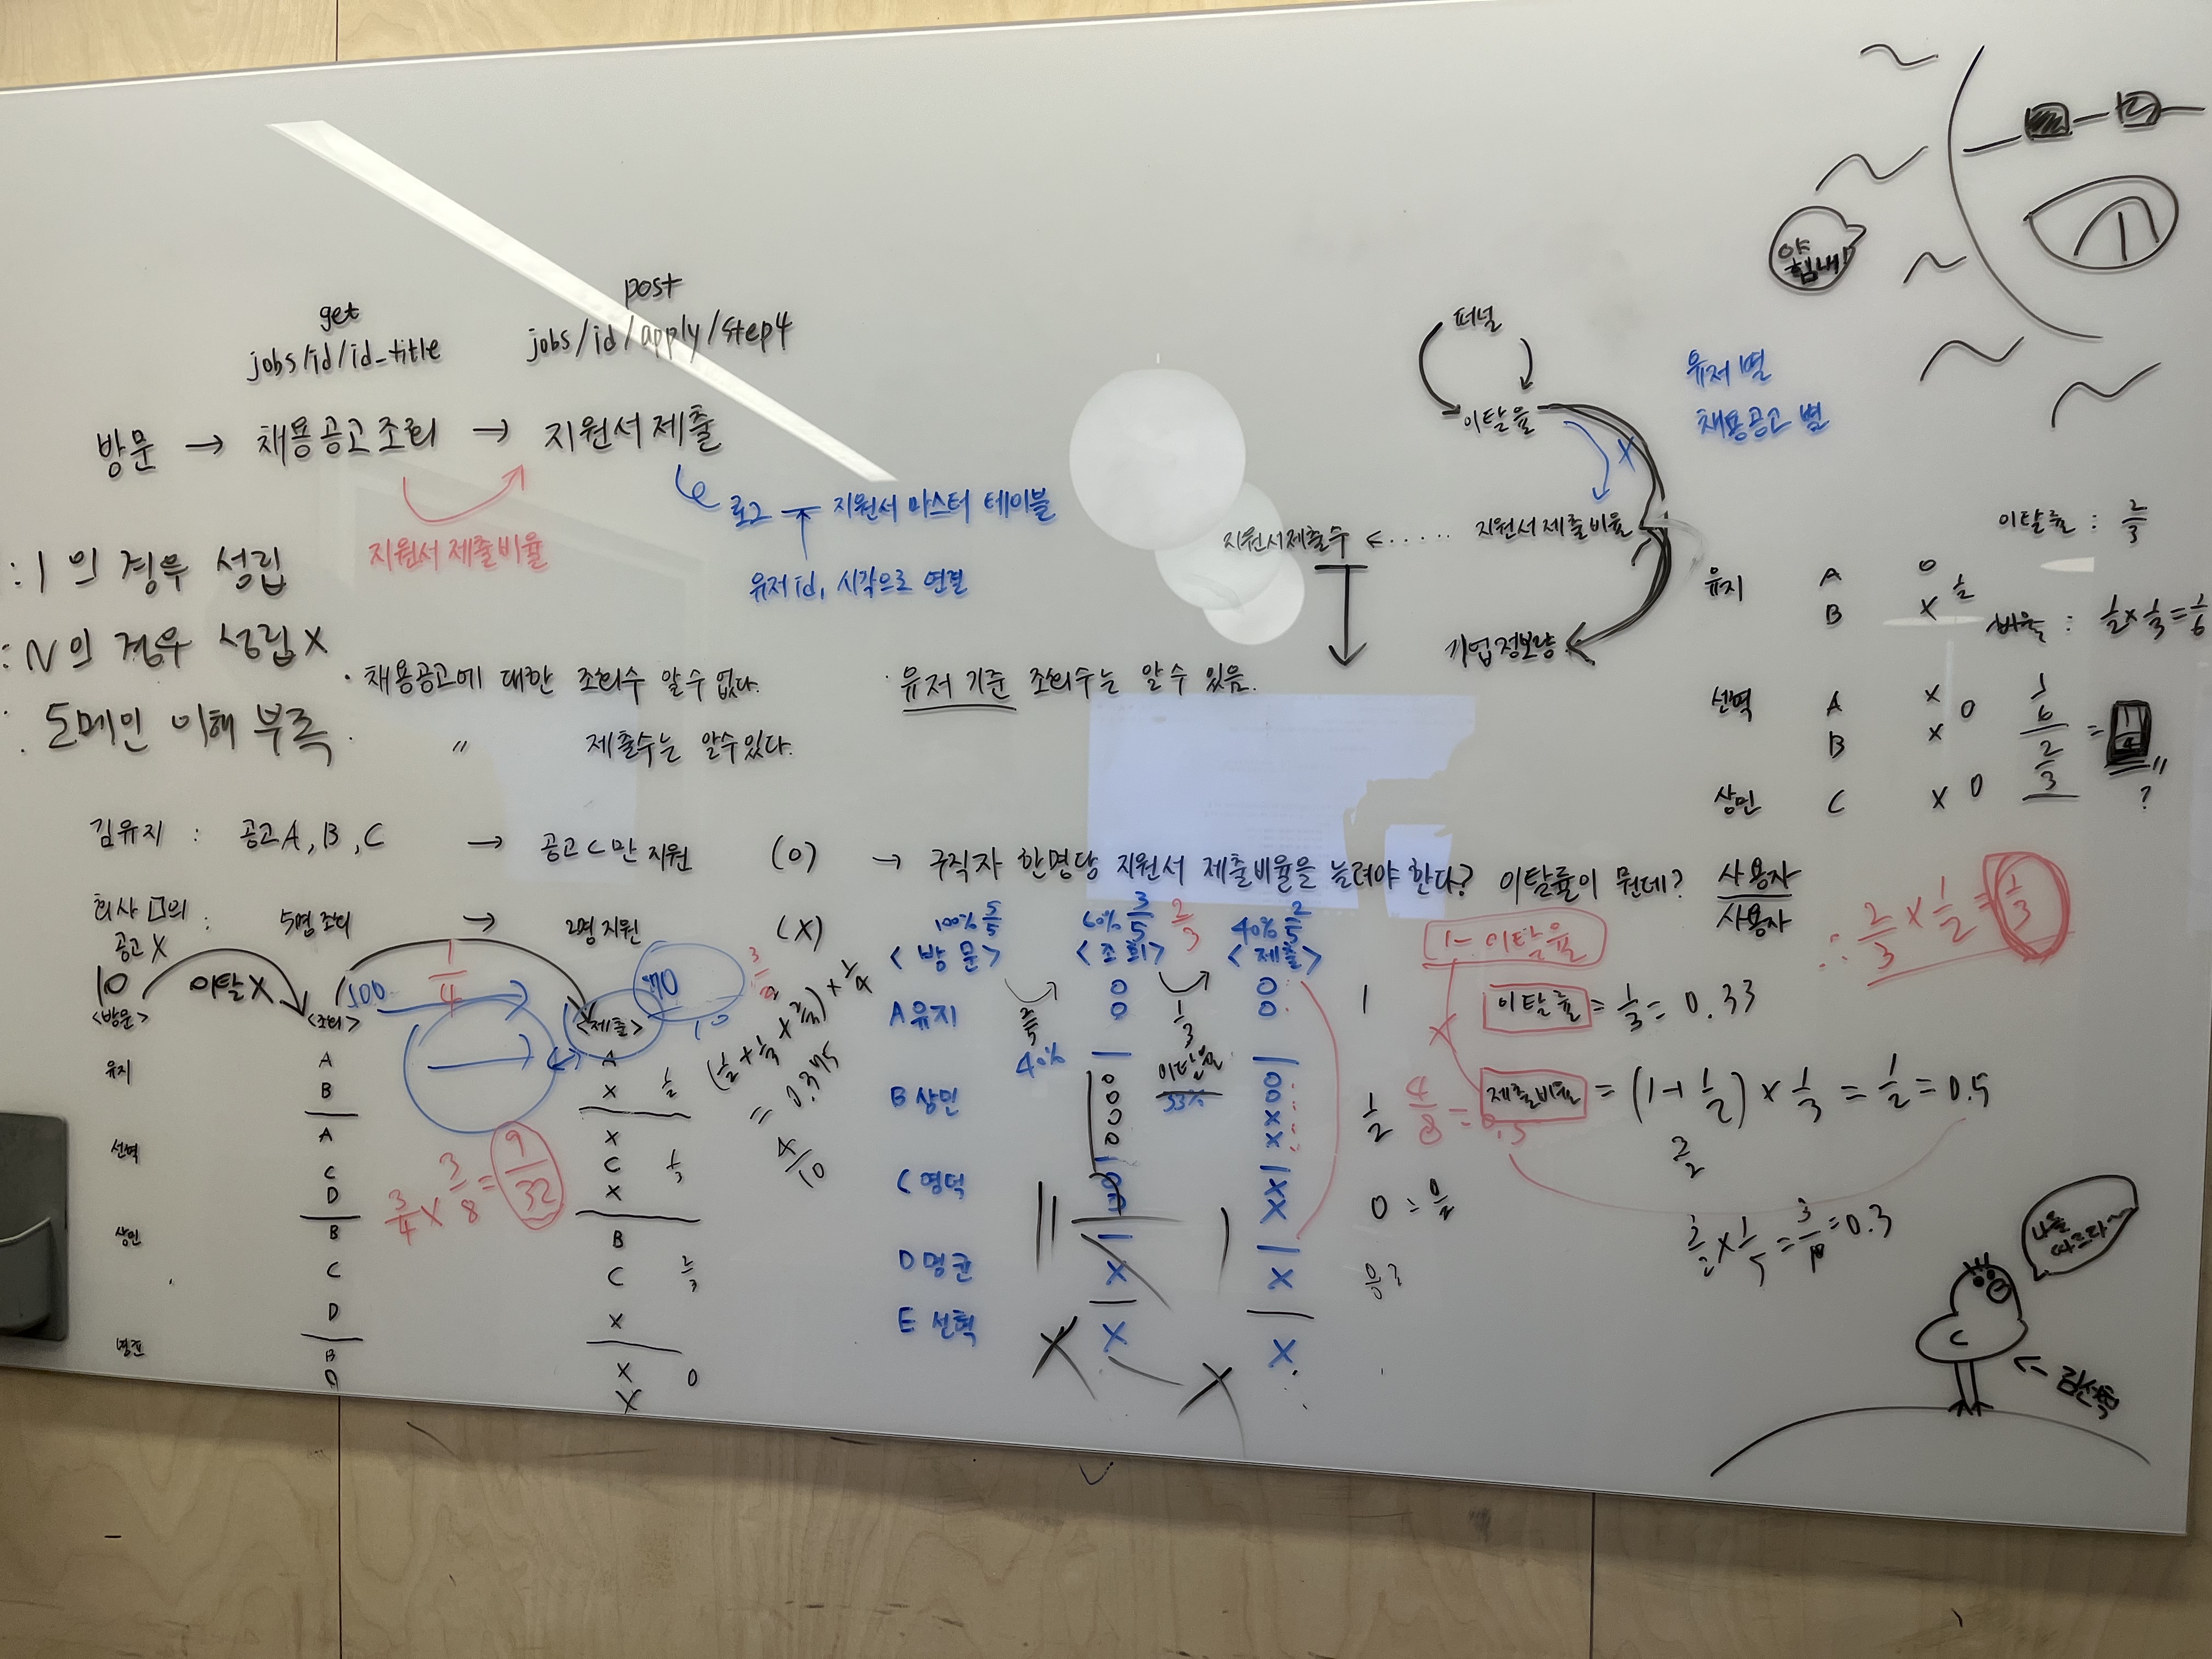 get
jobs/id/id_title
post
jobs/id/apply/step4
방문 → 채용공고조회 → 지원서 제출
지원서 제출비율
로그 지원서 마스터 테이블
유저 id, 시각으로 연결
: 1 의 경우 성립
: N의 경우 성립 X
: 도메인 이해 부족
· 채용공고에 대한 조회수 알 수 없다.
〃 제출수는 알 수 있다.
· 유저 기준 조회수는 알 수 있음.
퍼널
이탈율
X
지원서제출수 <····· 지원서 제출 비율
기업정보량
유저 별
채용공고 별
야 힘내!
이탈률 : 2/3
유지 A O
B X 1/2
비율 : 1/2 × 1/3 = 1/6
선혁 A X
B X O
상민 C X O
1/6
2/3
=
?
김유지 : 공고 A, B, C → 공고 C만 지원 (O) → 구직자 한명당 지원서 제출비율을 늘려야 한다? 이탈률이 뭔데? 사용자/사용자
회사 □의 : 5명 조회 → 2명 지원 (X)
공고 X
10 이탈X
100
1/4
70
10
<방문> <조회> <제출>
유지 A A
B X 1/2
선혁 A X
C C 1/3
D X
상민 B B
C C 2/3
D X
B X O
X
3/4 × 3/8 = 9/32
= 0.375
4/10
100% 5/5 60% 3/5 2/3 40% 2/5
<방문> <조회> <제출>
A 유지 O O
O O
1
2/5
40%
1/3
이탈율
33%
B 상민 O O
O O
O X
O X
1/2
4/8 = 0.5
C 영덕 X
X
0 = 0/2
D 명균 X X
E 선혁 X X
1- 이탈율
이탈률 = 1/3 = 0.33
제출비율 = (1+ 1/2) × 1/3 = 1/2 = 0.5
3/2
3/2 × 1/5 = 3/10 = 0.3
∴ 2/3 × 1/2 = 1/3
나를 따르라~
← 김선혁